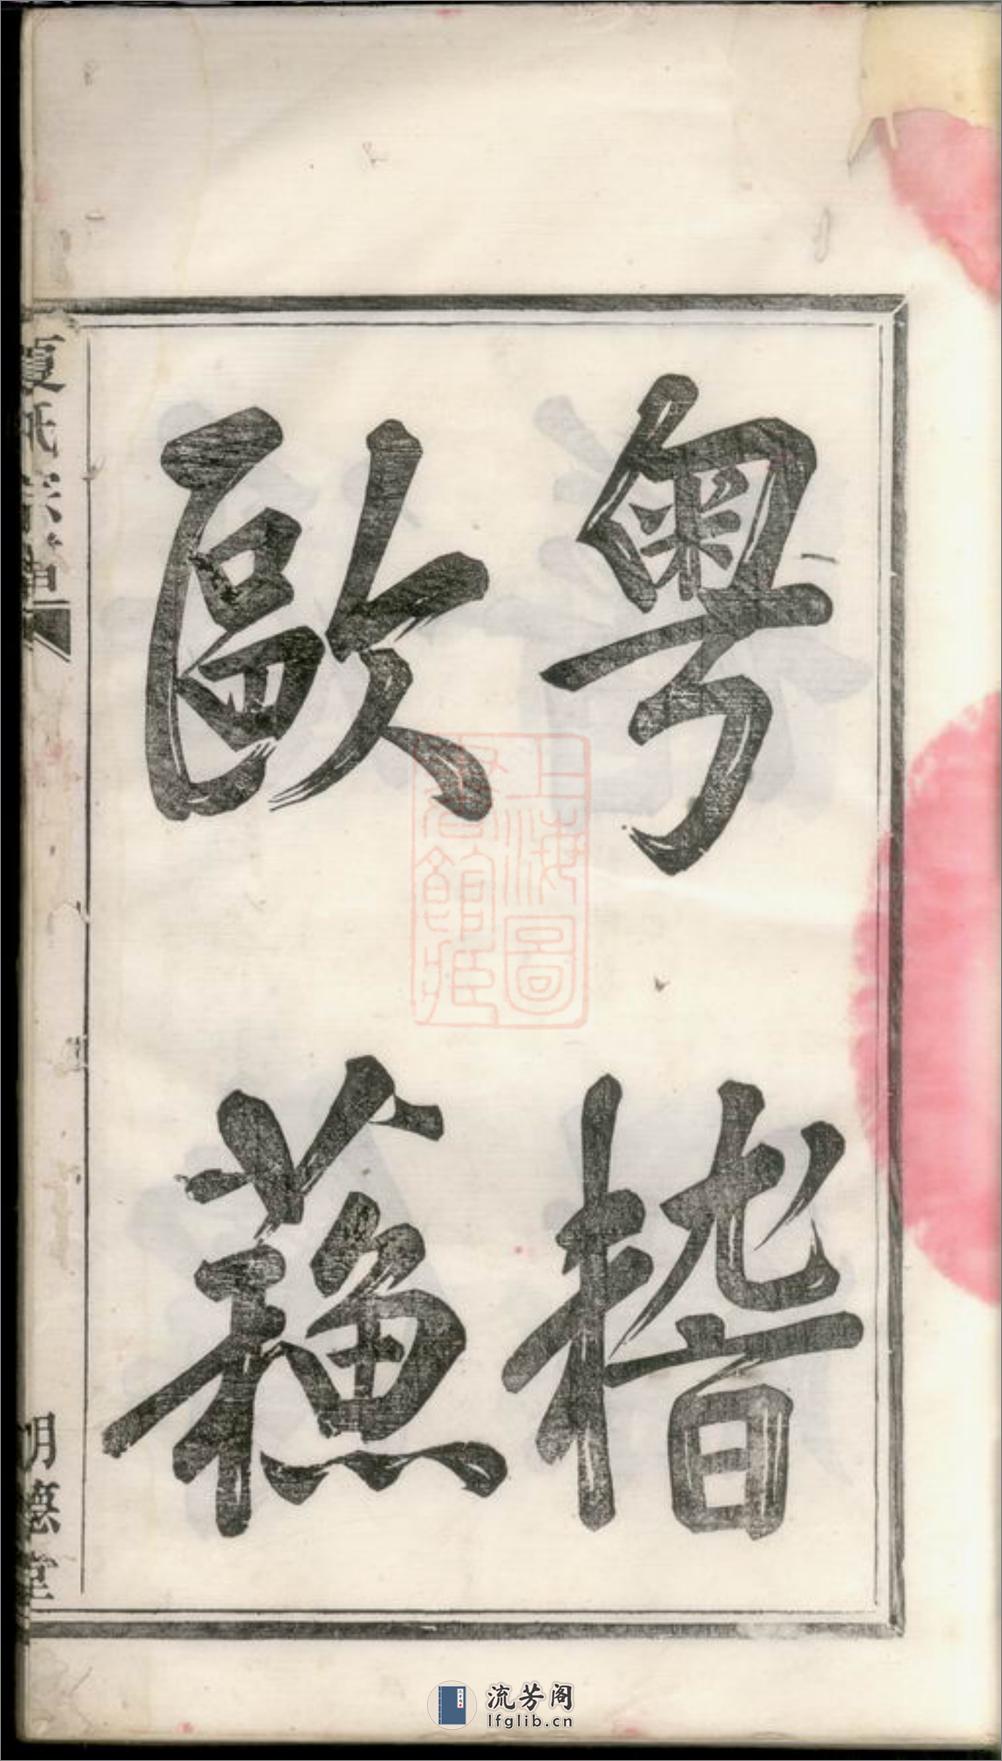 粵稽
歐蘓
夏氏宗譜
明德堂
上海圖
書館藏
流芳阁
lfglib.cn